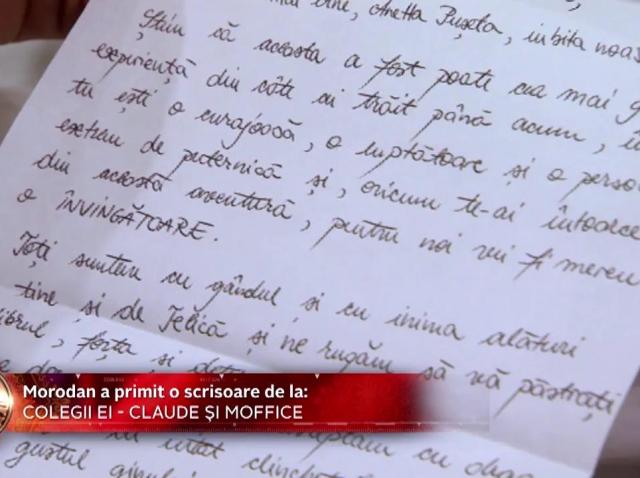 mai bine, Anetta Pușeta, iubita noas
Știm că aceasta a fost poate cea mai g
experiență din câte ai trăit până acum,
tu ești o curajoasă, o luptătoare și o perso
extrem de puternică și, oricum te-ai întoarce
din această aventură, pentru noi vei fi mereu
o ÎNVINGĂTOARE.
Toți suntem cu gândul și cu inima alături
tine și de Jelică și ne rugăm să vă păstrați
forța și
Morodan a primit o scrisoare de la:
COLEGII EI - CLAUDE ȘI MOFFICE
cu drag
gustul